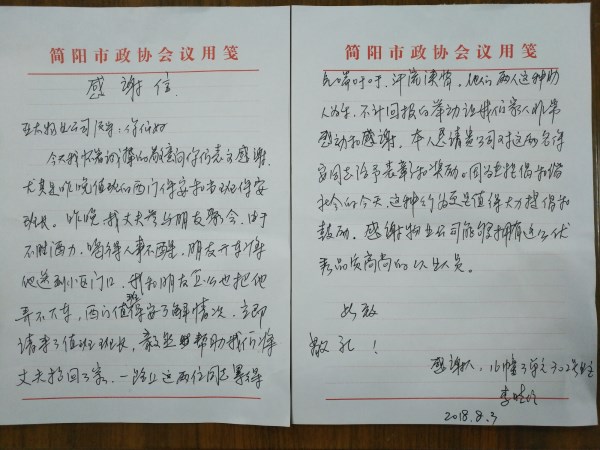 简阳市政协会议用笺
感谢信
亚太物业公司领导：你们好
今天我怀着诚挚的敬意向你们表示感谢，
尤其是昨晚值班的西门保安和当班保安
班长。昨晚我丈夫参与朋友聚会，由于
不胜酒力，喝得人事不醒，朋友开车将
他送到小区门口，我和朋友怎么也把他
弄不下车，西门值班保安了解情况，立即
请来了值班班长，毅然帮助我们将
丈夫抬回了家，一路上这两位同志累得
简阳市政协会议用笺
气喘吁吁，汗流浃背。他们两人这种助
人为乐，不计回报的举动让我们家人非常
感动和感谢。本人恳请贵公司对这两名保
安同志给予表彰和奖励。因为在提倡和谐
社会的今天，这种行为更是值得大力提倡和
鼓励。感谢物业公司能够拥有这么优
秀品质高尚的从业人员。
此致
敬礼！
感谢人：16幢3单元302号业主
李
2018.8.3